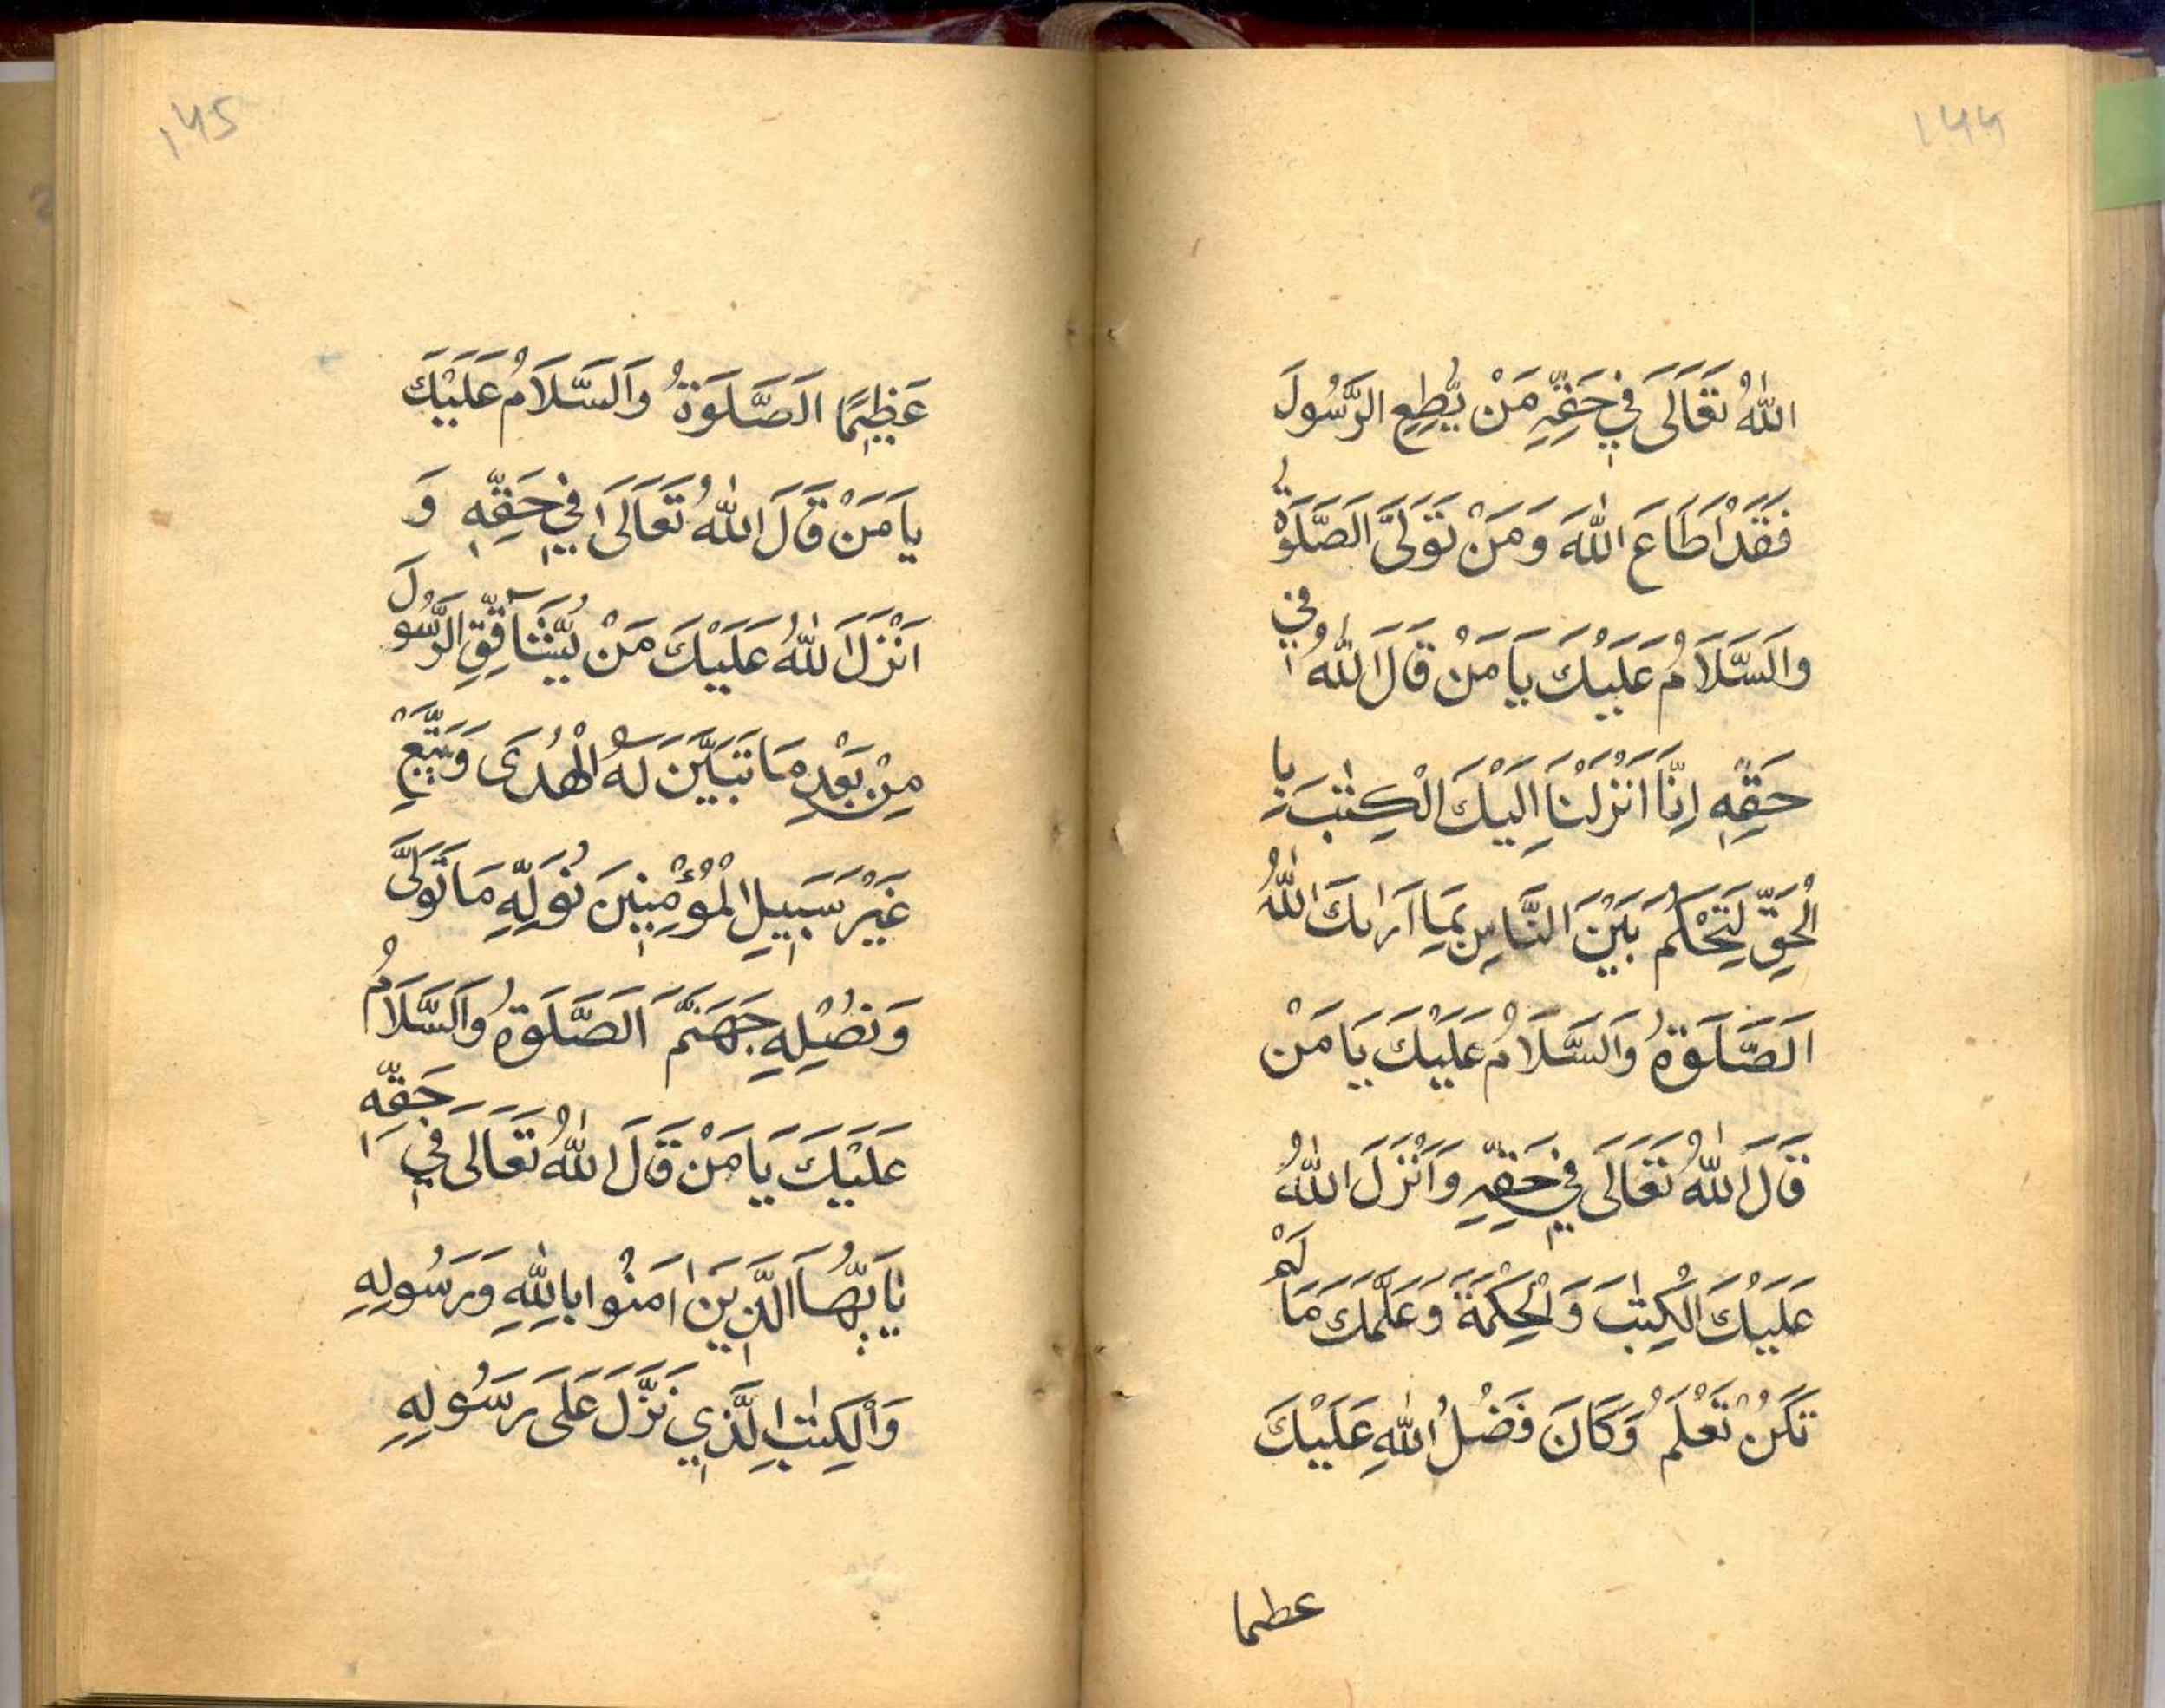 ۱۴۴
اللّٰهُ تَعَالَى فِي حَقِّهِ مَنْ يُّطِعِ الرَّسُولَ
فَقَدْ اَطَاعَ اللّٰهَ وَمَنْ تَوَلَّى الصَّلَوةُ
وَالسَّلَامُ عَلَيْكَ يَا مَنْ قَالَ اللّٰهُ فِي
حَقِّهٖ اِنَّا اَنْزَلْنَا اِلَيْكَ الْكِتٰبَ بِا
لْحَقِّ لِتَحْكُمَ بَيْنَ النَّاسِ بِمَا اَرٰىكَ اللّٰهُ
اَلصَّلَوةُ وَالسَّلَامُ عَلَيْكَ يَا مَنْ
قَالَ اللّٰهُ تَعَالَى فِي حَقِّهِ وَاَنْزَلَ اللّٰهُ
عَلَيْكَ الْكِتٰبَ وَالْحِكْمَةَ وَعَلَّمَكَ مَا لَمْ
تَكُنْ تَعْلَمُ وَكَانَ فَضْلُ اللّٰهِ عَلَيْكَ
عطىما
۱۴۵
عَظِيْمًا اَلصَّلَوةُ وَالسَّلَامُ عَلَيْكَ
يَا مَنْ قَالَ اللّٰهُ تَعَالَى فِي حَقِّهٖ وَ
اَنْزَلَ اللّٰهُ عَلَيْكَ مَنْ يُّشَآقِقِ الرَّسُولَ
مِنْ بَعْدِ مَا تَبَيَّنَ لَهُ الْهُدَى وَيَتَّبِعْ
غَيْرَ سَبِيلِ الْمُؤْمِنِينَ نُوَلِّهِ مَا تَوَلَّى
وَنُصْلِهِ جَهَنَّمَ اَلصَّلَوةُ وَالسَّلَامُ
عَلَيْكَ يَا مَنْ قَالَ اللّٰهُ تَعَالَى فِي حَقِّهٖ
يٰٓاَيُّهَا الَّذِينَ اٰمَنُوا بِاللّٰهِ وَرَسُولِهِ
وَالْكِتٰبِ الَّذِي نَزَّلَ عَلَى رَسُولِهِ